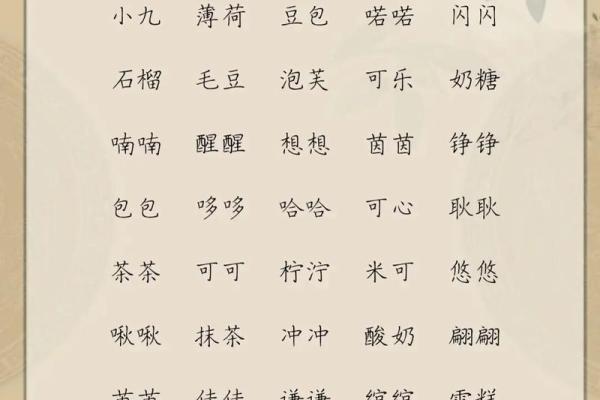 小九 薄荷 豆包 喏喏 闪闪
石榴 毛豆 泡芙 可乐 奶糖
喃喃 醒醒 想想 茵茵 铮铮
包包 哆哆 哈哈 可心 耿耿
茶茶 可可 柠泞 米可 悠悠
啾啾 抹茶 冲冲 酸奶 翩翩
佳佳 谦谦 缤缤 雪糕